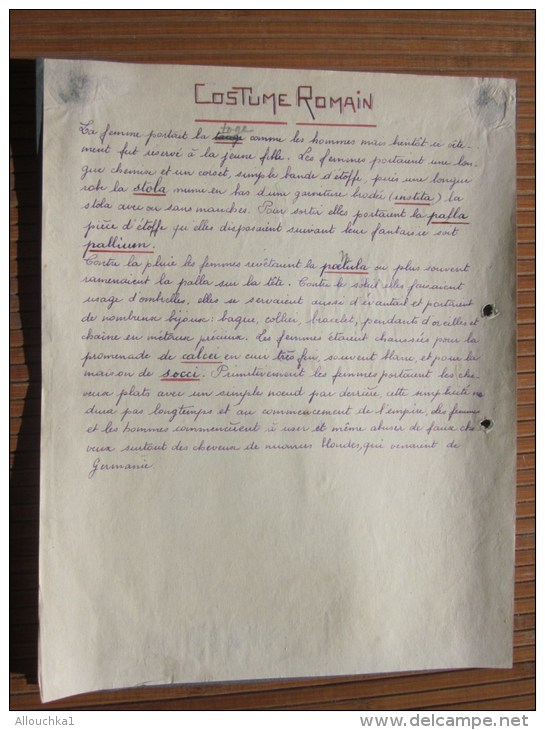 COSTUME ROMAIN
toge
La femme portait la comme les hommes mais bientôt ce vête-
ment fut réservé à la jeune fille. Les femmes portaient une lon-
gue chemise et un corset, simple bande d'étoffe, puis une longue
robe la stola munie en bas d'une garniture brodée (instita) la
stola avec ou sans manches. Pour sortir elles portaient la palla
pièce d'étoffe qu'elles disposaient suivant leur fantaisie soit
pallium.
Contre la pluie les femmes revêtaient la pœtula ou plus souvent
ramenaient la palla sur la tête. Contre le soleil elles faisaient
usage d'ombrelles, elles se servaient aussi d'éventail et portaient
de nombreux bijoux: bague, collier, bracelet, pendants d'oreilles et
chaîne en métaux précieux. Les femmes étaient chaussées pour la
promenade de calcei en cuir très fin, souvent blanc, et pour la
maison de socci. Primitivement les femmes portaient les che-
veux plats avec un simple nœud par derrière, cette simplicité ne
dura pas longtemps et au commencement de l'empire, des femmes
et les hommes commencèrent à user et même abuser de faux che
veux surtout des cheveux de nuances blondes, qui venaient de
Germanie
Allouchka1
© delcampe.net